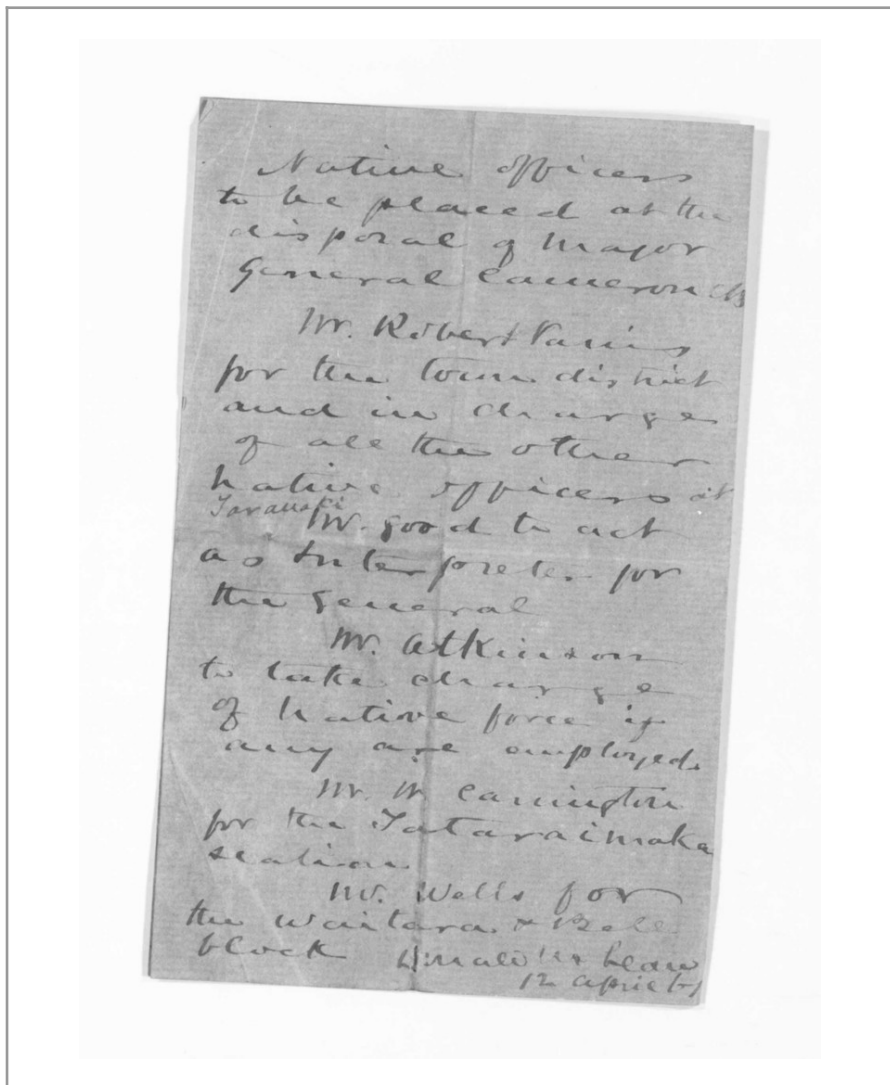 Native officers
to be placed at the
disposal of Major
General Cameron CB
Mr. Robert Parris
for the town district
and in charge
of all the other
Native officers at
Taranaki
Mr. Good to act
as Interpreter for
the General
Mr. Atkinson
to take charge
of Native force if
any are employed.
Mr. W Carrington
for the Tataraimaka
station
Mr. Wells for
the Waitara & Bell
block Donald McLean
12 April 61